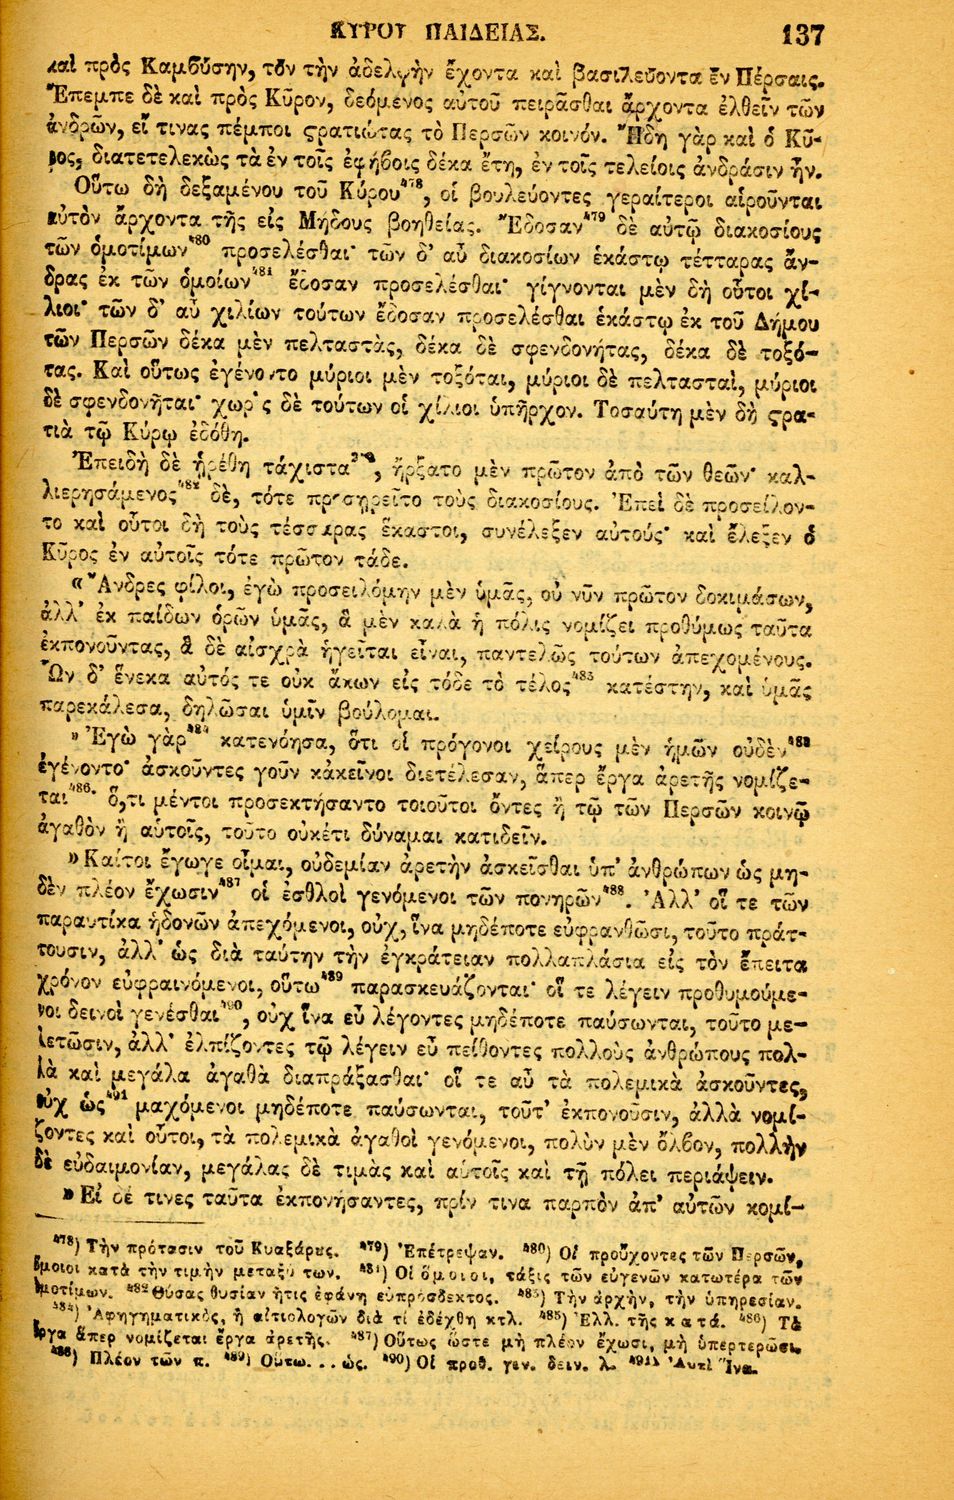 ΚΥΡΟΥ ΠΑΙΔΕΙΑΣ. 137
καὶ πρὸς Καμβύσην, τὸν τὴν ἀδελφὴν ἔχοντα καὶ βασιλεύοντα ἐν Πέρσαις.
Ἔπεμπε δὲ καὶ πρὸς Κῦρον, δεόμενος αὐτοῦ πειρᾶσθαι ἄρχοντα ἐλθεῖν τῶν
ἀνδρῶν, εἴ τινας πέμποι ϛρατιώτας τὸ Περσῶν κοινόν. Ἤδη γὰρ καὶ ὁ Κῦ-
ρος, διατετελεκὼς τὰ ἐν τοῖς ἐφήβοις δέκα ἔτη, ἐν τοῖς τελείοις ἀνδράσιν ἦν.
Οὕτω δὴ δεξαμένου τοῦ Κύρου⁴⁷⁸, οἱ βουλεύοντες γεραίτεροι αἱροῦνται
αὐτὸν ἄρχοντα τῆς εἰς Μήδους βοηθείας. Ἔδοσαν⁴⁷⁹ δὲ αὐτῷ διακοσίους
τῶν ὁμοτίμων⁴⁸⁰ προσελέσθαι· τῶν δ' αὖ διακοσίων ἑκάστῳ τέτταρας ἄν-
δρας ἐκ τῶν ὁμοίων⁴⁸¹ ἔδοσαν προσελέσθαι· γίγνονται μὲν δὴ οὗτοι χί-
λιοι· τῶν δ' αὖ χιλίων τούτων ἔδοσαν προσελέσθαι ἑκάστῳ ἐκ τοῦ Δήμου
τῶν Περσῶν δέκα μὲν πελταστὰς, δέκα δὲ σφενδονήτας, δέκα δὲ τοξό-
τας. Καὶ οὕτως ἐγένοντο μύριοι μὲν τοξόται, μύριοι δὲ πελτασταὶ, μύριοι
δὲ σφενδονῆται· χωρὶς δὲ τούτων οἱ χίλιοι ὑπῆρχον. Τοσαύτη μὲν δὴ ϛρα-
τιὰ τῷ Κύρῳ ἐδόθη.
Ἐπειδὴ δὲ ᾑρέθη τάχιστα, ἤρξατο μὲν πρῶτον ἀπὸ τῶν θεῶν· καλ-
λιερησάμενος⁴⁸² δὲ, τότε προσῃρεῖτο τοὺς διακοσίους. Ἐπεὶ δὲ προσείλον-
το καὶ οὗτοι δὴ τοὺς τέσσαρας ἕκαστοι, συνέλεξεν αὐτούς· καὶ ἔλεξεν ὁ
Κῦρος ἐν αὐτοῖς τότε πρῶτον τάδε.
«Ἄνδρες φίλοι, ἐγὼ προσειλόμην μὲν ὑμᾶς, οὐ νῦν πρῶτον δοκιμάσων,
ἀλλ' ἐκ παίδων ὁρῶν ὑμᾶς, ἃ μὲν καλὰ ἡ πόλις νομίζει προθύμως ταῦτα
ἐκπονοῦντας, ἃ δὲ αἰσχρὰ ἡγεῖται εἶναι, παντελῶς τούτων ἀπεχομένους.
Ὧν δ' ἕνεκα αὐτός τε οὐκ ἄκων εἰς τόδε τὸ τέλος⁴⁸³ κατέστην, καὶ ὑμᾶς
παρεκάλεσα, δηλῶσαι ὑμῖν βούλομαι.
» Ἐγὼ γὰρ⁴⁸⁴ κατενόησα, ὅτι οἱ πρόγονοι χείρους μὲν ἡμῶν οὐδὲν⁴⁸⁵
ἐγένοντο· ἀσκοῦντες γοῦν κἀκεῖνοι διετέλεσαν, ἅπερ ἔργα ἀρετῆς νομίζε-
ται⁴⁸⁶· ὅ,τι μέντοι προσεκτήσαντο τοιοῦτοι ὄντες ἢ τῷ τῶν Περσῶν κοινῷ
ἀγαθὸν ἢ αὑτοῖς, τοῦτο οὐκέτι δύναμαι κατιδεῖν.
»Καίτοι ἔγωγε οἶμαι, οὐδεμίαν ἀρετὴν ἀσκεῖσθαι ὑπ' ἀνθρώπων ὡς μη-
δὲν πλέον ἔχωσιν⁴⁸⁷ οἱ ἐσθλοὶ γενόμενοι τῶν πονηρῶν⁴⁸⁸. Ἀλλ' οἵ τε τῶν
παραυτίκα ἡδονῶν ἀπεχόμενοι, οὐχ, ἵνα μηδέποτε εὐφρανθῶσι, τοῦτο πράτ-
τουσιν, ἀλλ' ὡς διὰ ταύτην τὴν ἐγκράτειαν πολλαπλάσια εἰς τὸν ἔπειτα
χρόνον εὐφραινόμενοι, οὕτω⁴⁸⁹ παρασκευάζονται· οἵ τε λέγειν προθυμούμε-
νοι δεινοὶ γενέσθαι⁴⁹⁰, οὐχ ἵνα εὖ λέγοντες μηδέποτε παύσωνται, τοῦτο με-
λετῶσιν, ἀλλ' ἐλπίζοντες τῷ λέγειν εὖ πείθοντες πολλοὺς ἀνθρώπους πολ-
λὰ καὶ μεγάλα ἀγαθὰ διαπράξασθαι· οἵ τε αὖ τὰ πολεμικὰ ἀσκοῦντες,
οὐχ ὡς⁴⁹¹ μαχόμενοι μηδέποτε παύσωνται, τοῦτ' ἐκπονοῦσιν, ἀλλὰ νομί-
ζοντες καὶ οὗτοι, τὰ πολεμικὰ ἀγαθοὶ γενόμενοι, πολὺν μὲν ὄλβον, πολλὴν
δὲ εὐδαιμονίαν, μεγάλας δὲ τιμὰς καὶ αὑτοῖς καὶ τῇ πόλει περιάψειν.
»Εἰ δέ τινες ταῦτα ἐκπονήσαντες, πρίν τινα παρπὸν ἀπ' αὐτῶν κομί-
⁴⁷⁸) Τὴν πρότασιν τοῦ Κυαξάρους. ⁴⁷⁹) Ἐπέτρεψαν. ⁴⁸⁰) Οἱ προὔχοντες τῶν Περσῶν,
ὅμοιοι κατὰ τὴν τιμὴν μεταξύ των. ⁴⁸¹) Οἱ ὅμοιοι, τάξις τῶν εὐγενῶν κατωτέρα τῶν
ὁμοτίμων. ⁴⁸² Θύσας θυσίαν ἥτις ἐφάνη εὐπρόσδεκτος. ⁴⁸³) Τὴν ἀρχὴν, τὴν ὑπηρεσίαν.
⁴⁸⁴) Ἀφηγηματικὸς, ἢ αἰτιολογῶν διὰ τί ἐδέχθη κτλ. ⁴⁸⁵) Ἐλλ. τῆς κατά. ⁴⁸⁶) Τὰ
ἔργα ἅπερ νομίζεται ἔργα ἀρετῆς. ⁴⁸⁷) Οὕτως ὥστε μὴ πλέον ἔχωσι, μὴ ὑπερτερῶσι.
⁴⁸⁸) Πλέον τῶν π. ⁴⁸⁹) Οὕτω. . . ὡς. ⁴⁹⁰) Οἱ προθ. γεν. δειν. λ. ⁴⁹¹) Ἀντὶ Ἵνα.